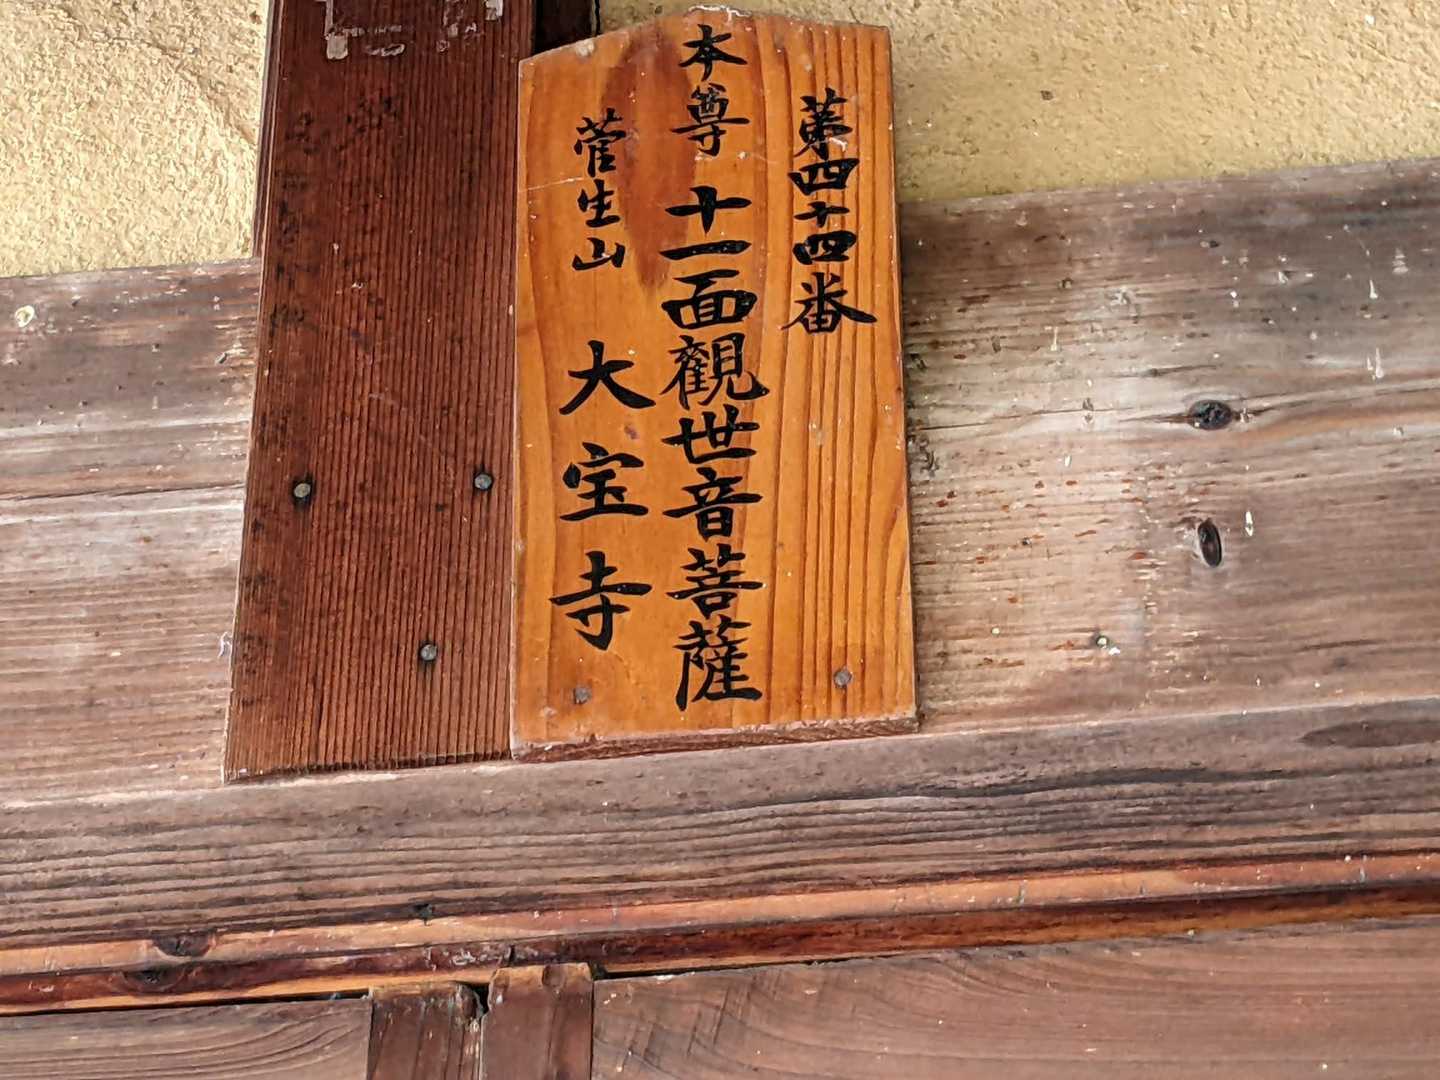 第四十四番
本尊 十一面觀世音菩薩
菅生山 大宝寺